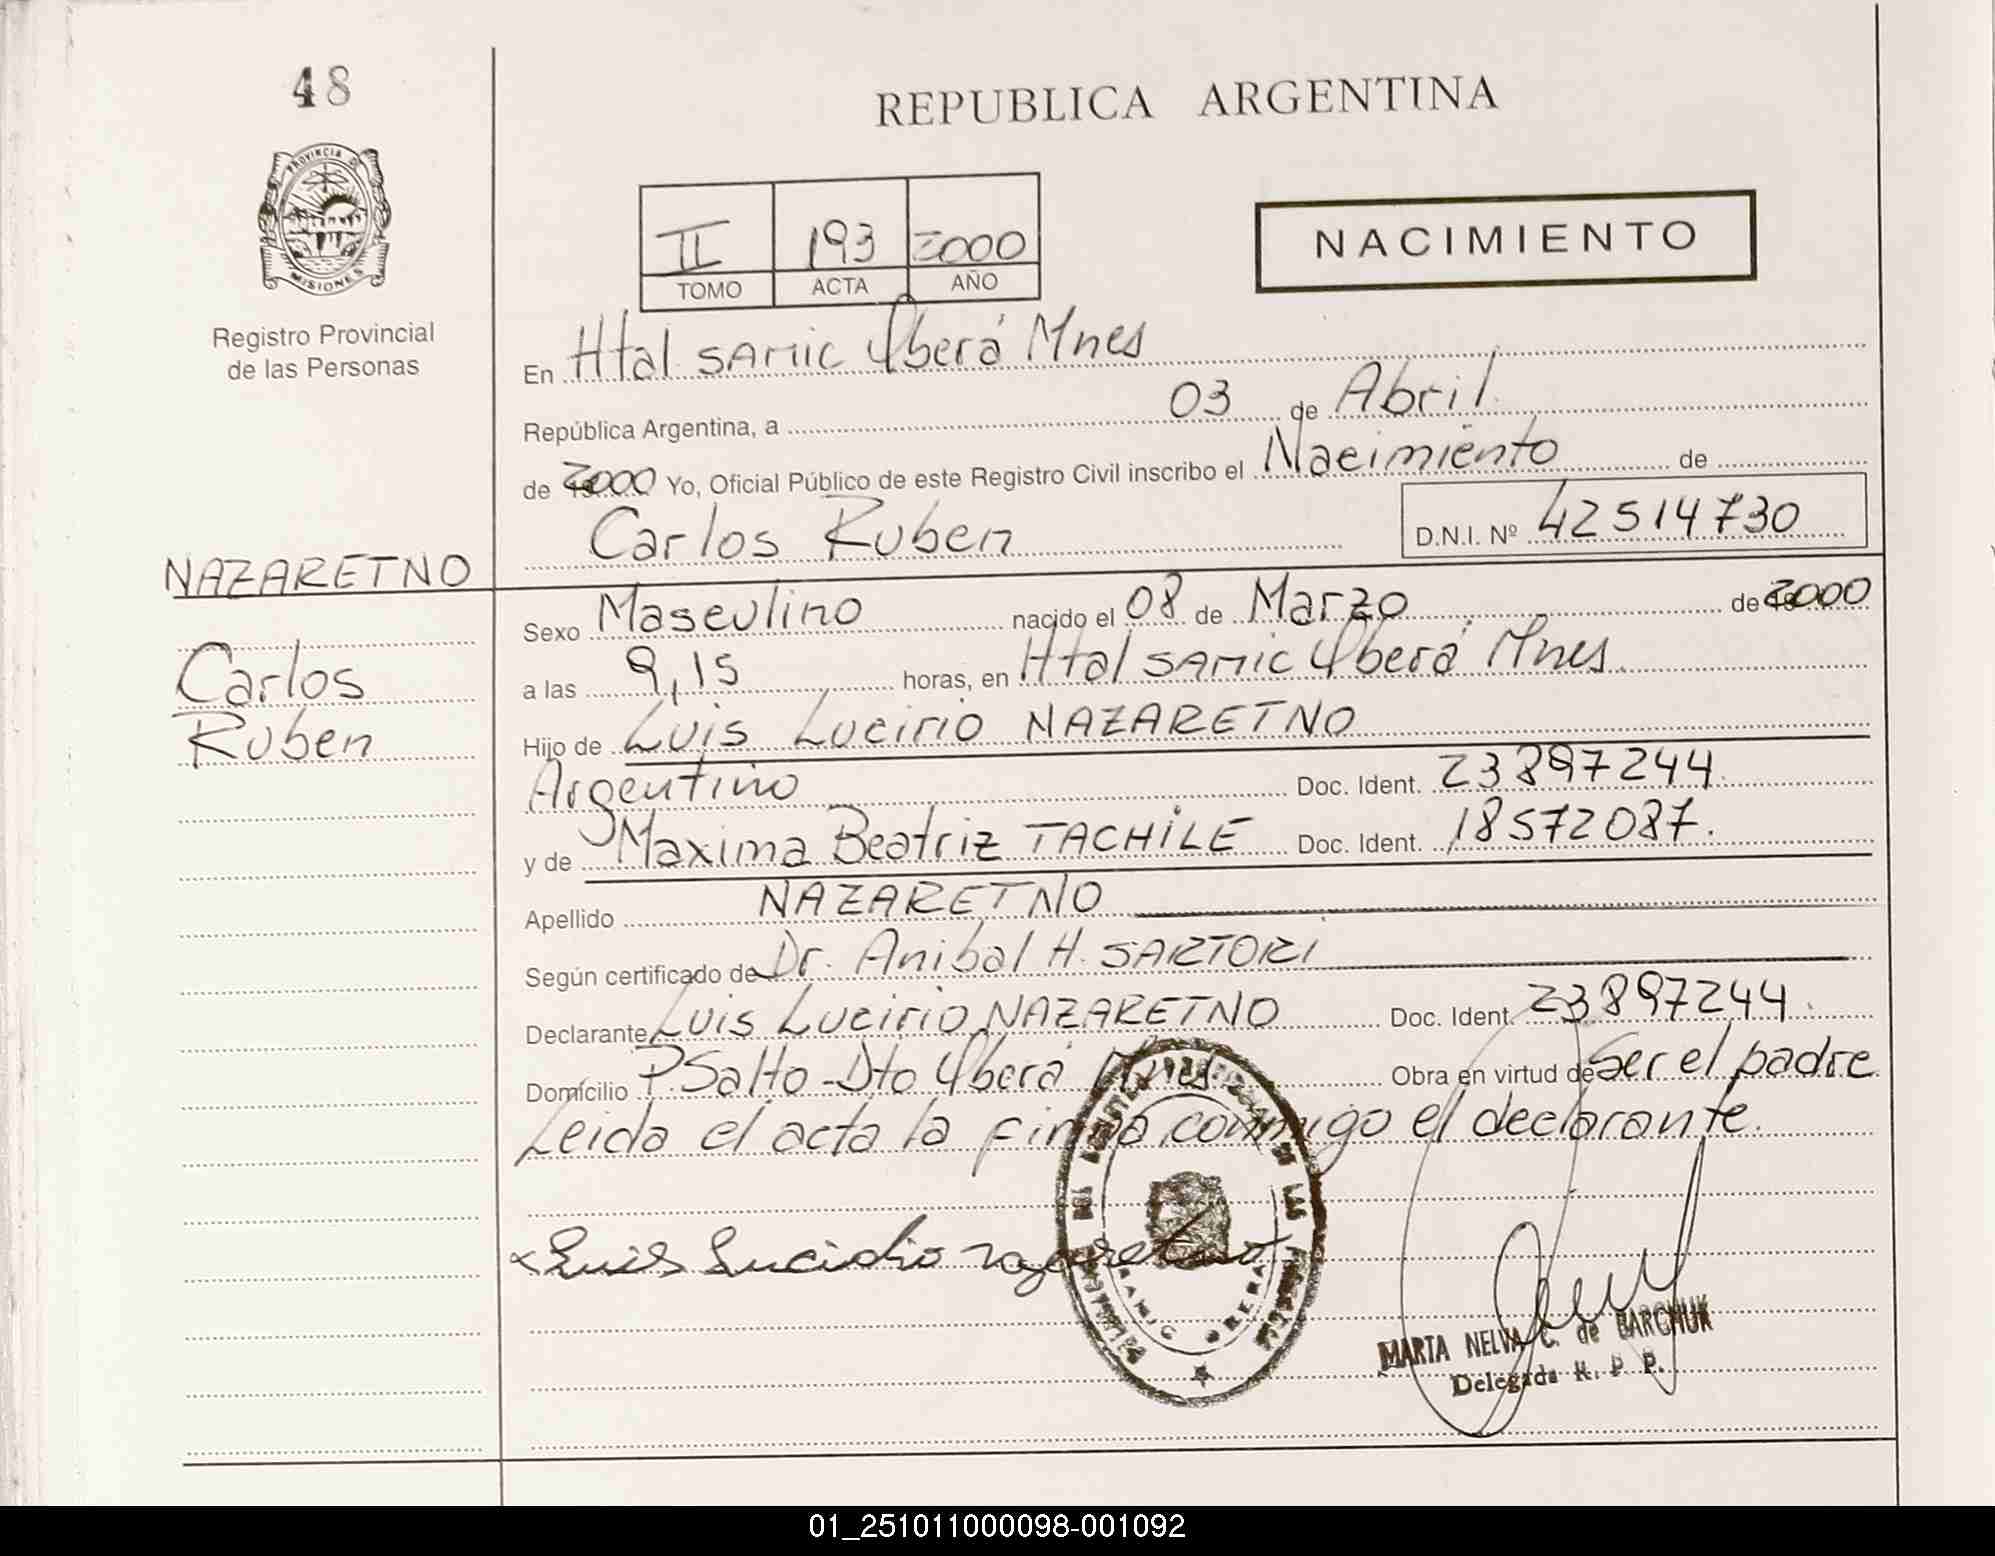 48
REPUBLICA ARGENTINA
PROVINCIA D
MISIONES
Registro Provincial
de las Personas
II 193 2000
TOMO ACTA AÑO
NACIMIENTO
En Htal SAMIC Oberá Mnes
República Argentina, a 03 de Abril
de 2000 Yo, Oficial Público de este Registro Civil inscribo el Nacimiento de
Carlos Ruben D.N.I. Nº 42514730
NAZARETNO
Carlos
Ruben
Sexo Masculino nacido el 08 de Marzo de 2000
a las 9,15 horas, en Htal SAMIC Oberá Mnes.
Hijo de Luis Lucirio NAZARETNO
Argentino Doc. Ident. 23897244.
y de Maxima Beatriz TACHILE Doc. Ident. 18572087.
Apellido NAZARETNO
Según certificado de Dr. Anibal H. SARTORI
Declarante Luis Lucirio NAZARETNO Doc. Ident. 23897244.
Domicilio P. Salto-Dto Oberá Mnes Obra en virtud de Ser el padre
Leida el acta la firma conmigo el declarante.
Luis Lucidio nazaretno
DE LAS
SAMIC OBERA
MARTA NELVA C. de BARCHUK
Delegada R. P. P.
01_251011000098-001092